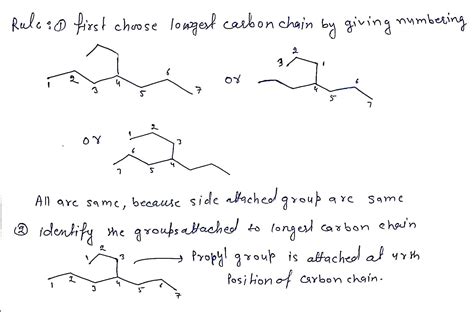 Rule: ① first choose longest carbon chain by giving numbering
1 2 3 4 5 6 7
or
3 2 1 4 5 6 7
or
1 2 3 4 5 6 7
All are same, because side attached group are same
② identify the groups attached to longest carbon chain
1 2 3 4 5 6 7
1 2 3
Propyl group is attached at 4rth
Position of carbon chain.